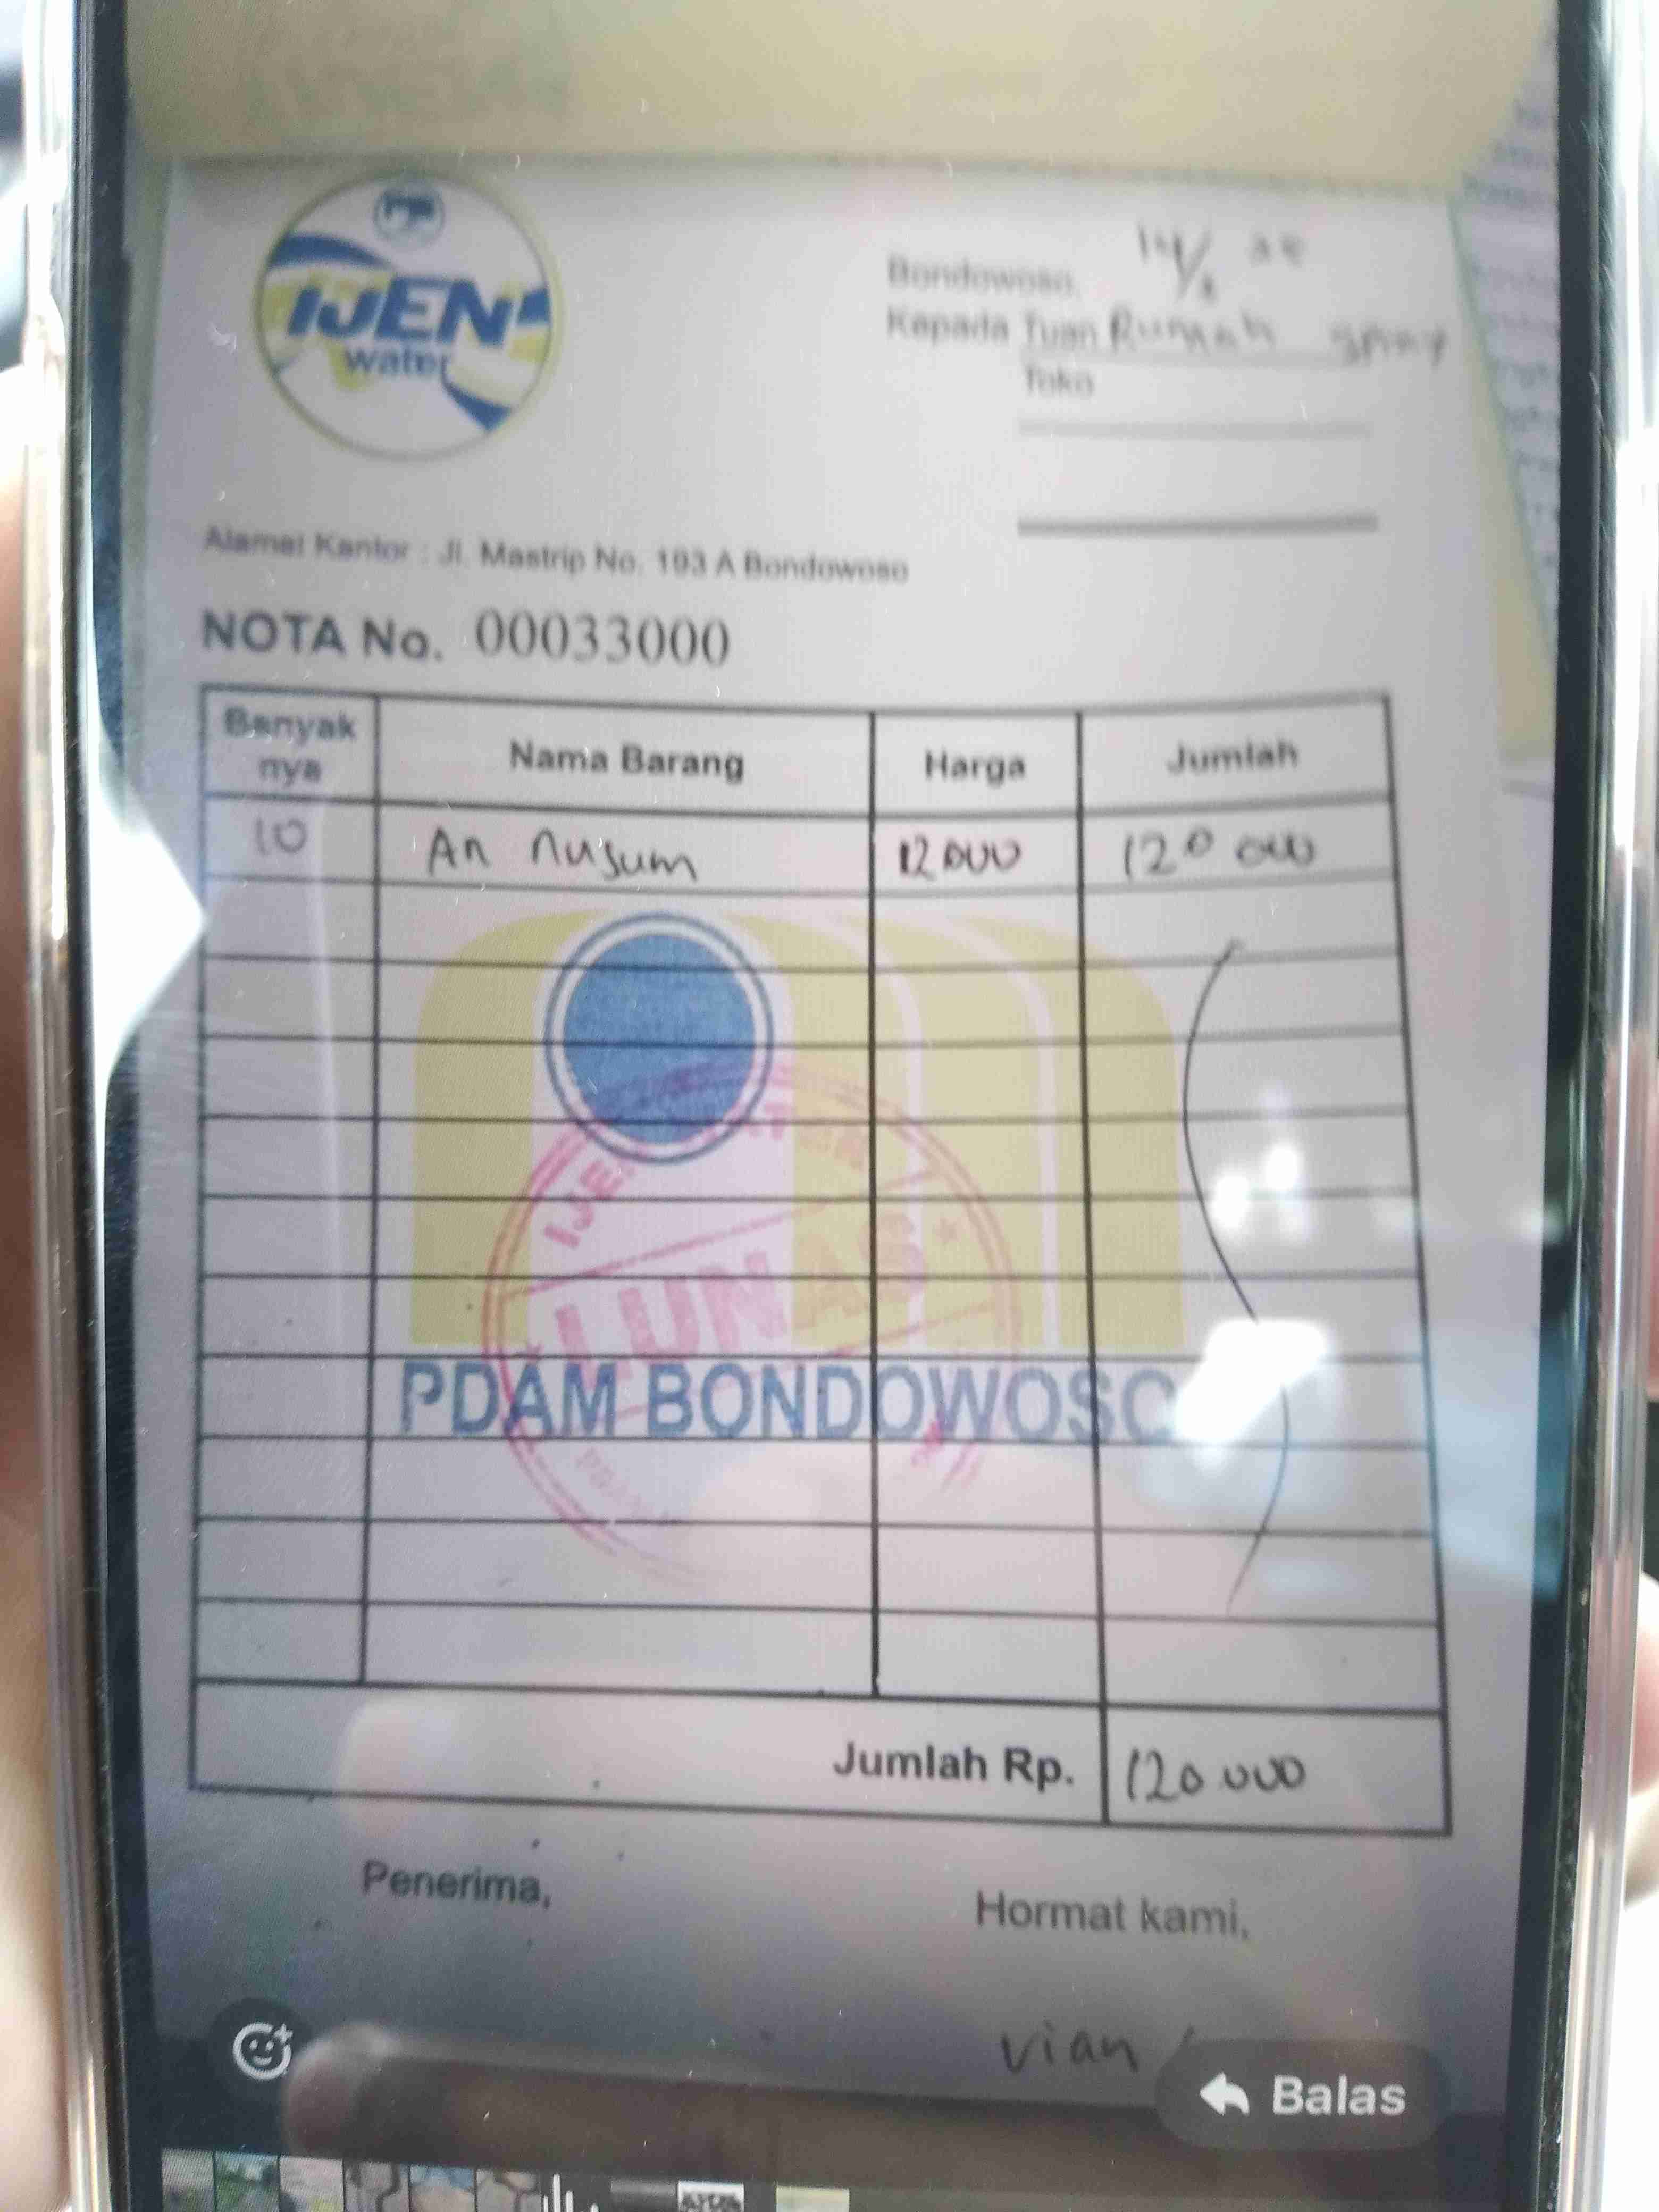 IJEN
water
Bondowoso, 14/
Kepada Tuan Rumah
Toko
Alamat Kantor : Jl. Mastrip No. 193 A Bondowoso
NOTA No. 00033000
Banyak nya Nama Barang Harga Jumlah
10 An nusum 12.000 120 000
IJEN WATER
LUNAS
PDAM BONDOWOSO
Jumlah Rp. 120.000
Penerima,
Hormat kami,
vian
Balas